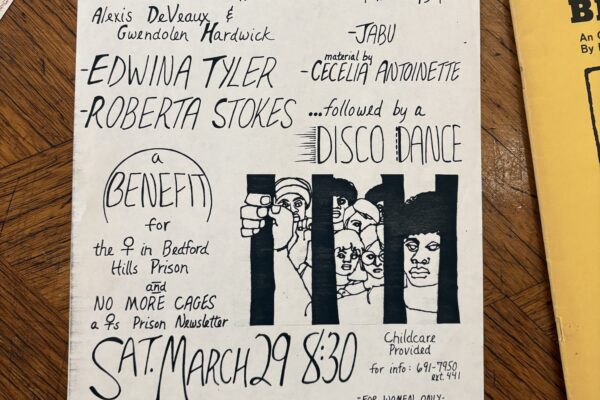 Alexis DeVeaux &
Gwendolen Hardwick
-EDWINA TYLER
-ROBERTA STOKES
-JABU
material by
-CECELIA ANTOINETTE
...followed by a
DISCO DANCE
a
BENEFIT
for
the ♀ in Bedford
Hills Prison
and
NO MORE CAGES
a ♀s Prison Newsletter
SAT. MARCH 29 8:30
Childcare
Provided
for info: 691-7950
ext. 441
-FOR WOMEN ONLY-